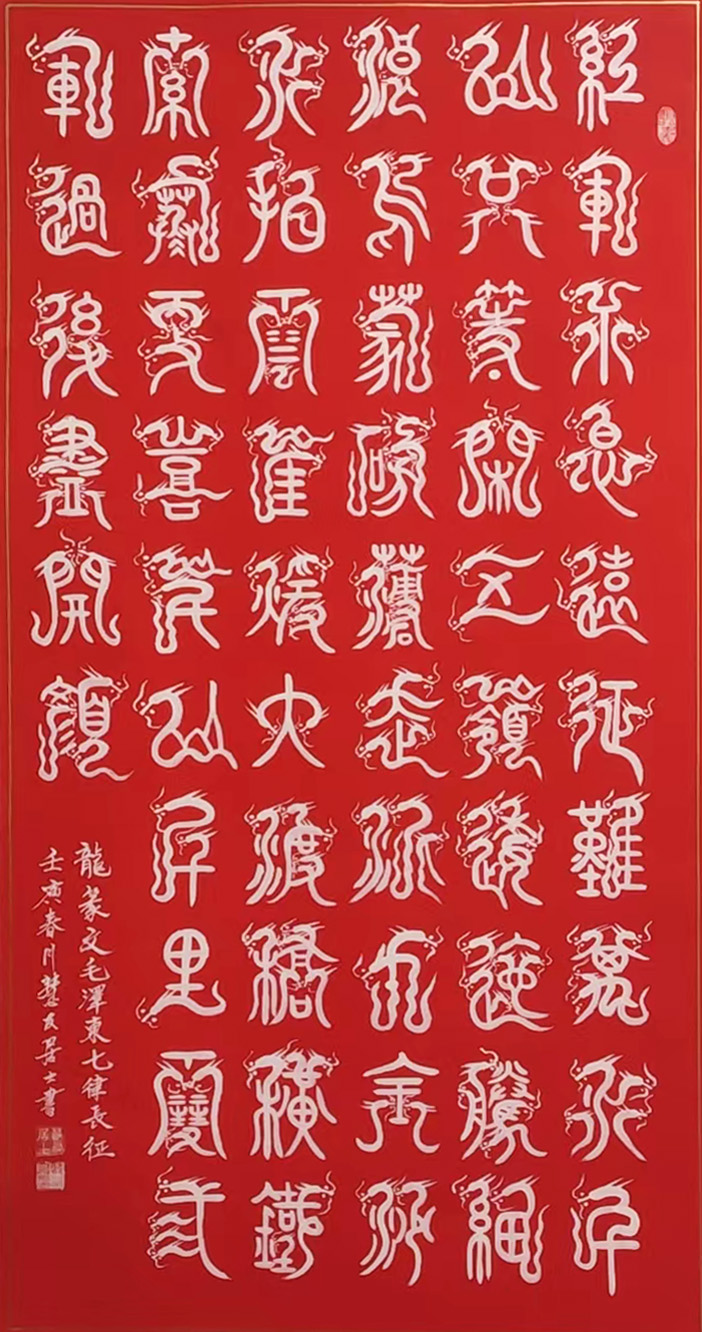 紅軍不怕遠征難萬水千
山只等閑五嶺逶迤騰細
浪烏蒙磅礴走泥丸金沙
水拍雲崖暖大渡橋橫鐵
索寒更喜岷山千里雪三
軍過後盡開顏
龍篆文毛澤東七律長征
壬寅春月慧友居士書